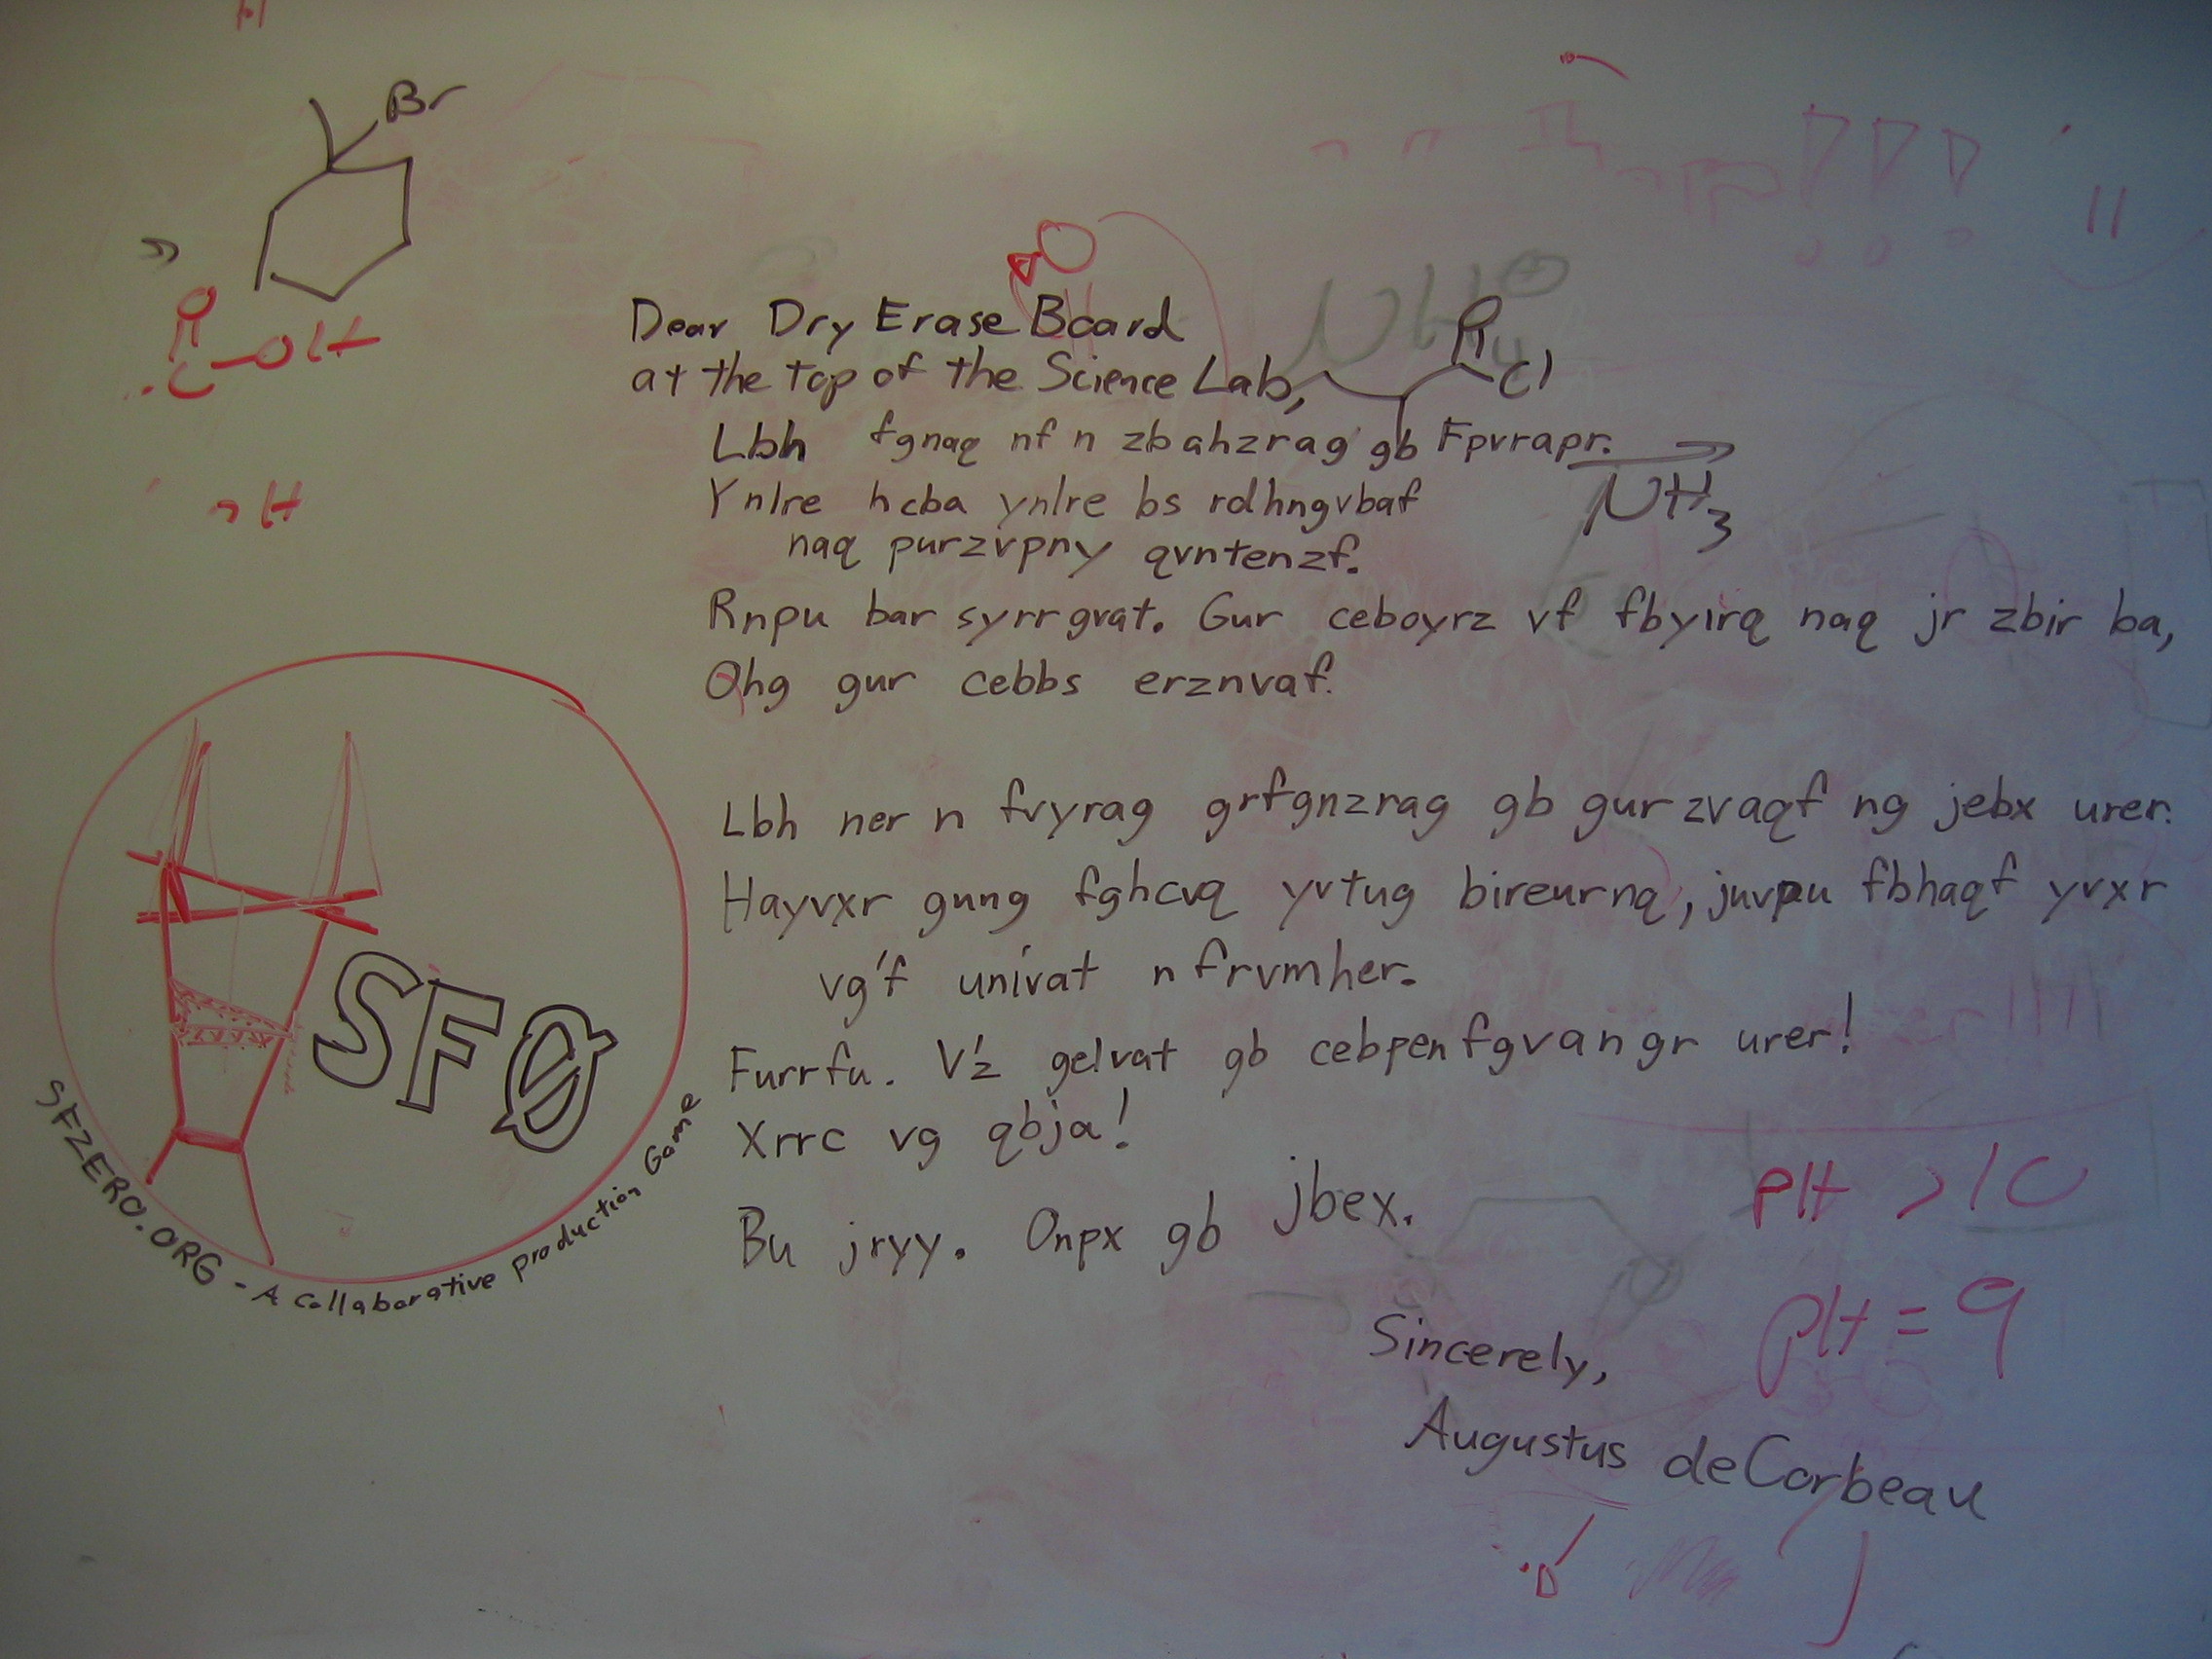 Br
O
C-OH
H
NH4
O
Cl
NH3
Dear Dry Erase Board
at the top of the Science Lab,
Lbh fgnaq nf n zbahzrag gb Fpvrapr.
Ynlre hcba ynlre bs rdhngvbaf
naq purzvpny qvntenzf.
Rnpu bar syrrgvat. Gur ceboyrz vf fbyirq naq jr zbir ba,
Ohg gur cebbs erznvaf.
Lbh ner n fvyrag grfgnzrag gb gur zvaqf ng jebx urer.
Hayvxr gung fghcvq yvtug bireurnq, juvpu fbhaqf yvxr
vg'f univat n frvmher.
Furrfu. V'z gelvat gb cebpenfgvangr urer!
Xrrc vg qbja!
Bu jryy. Onpx gb jbex.
Sincerely,
Augustus deCorbeau
SFØ
SFZERO.ORG - A collaborative production Game
pH > 10
pH = 9